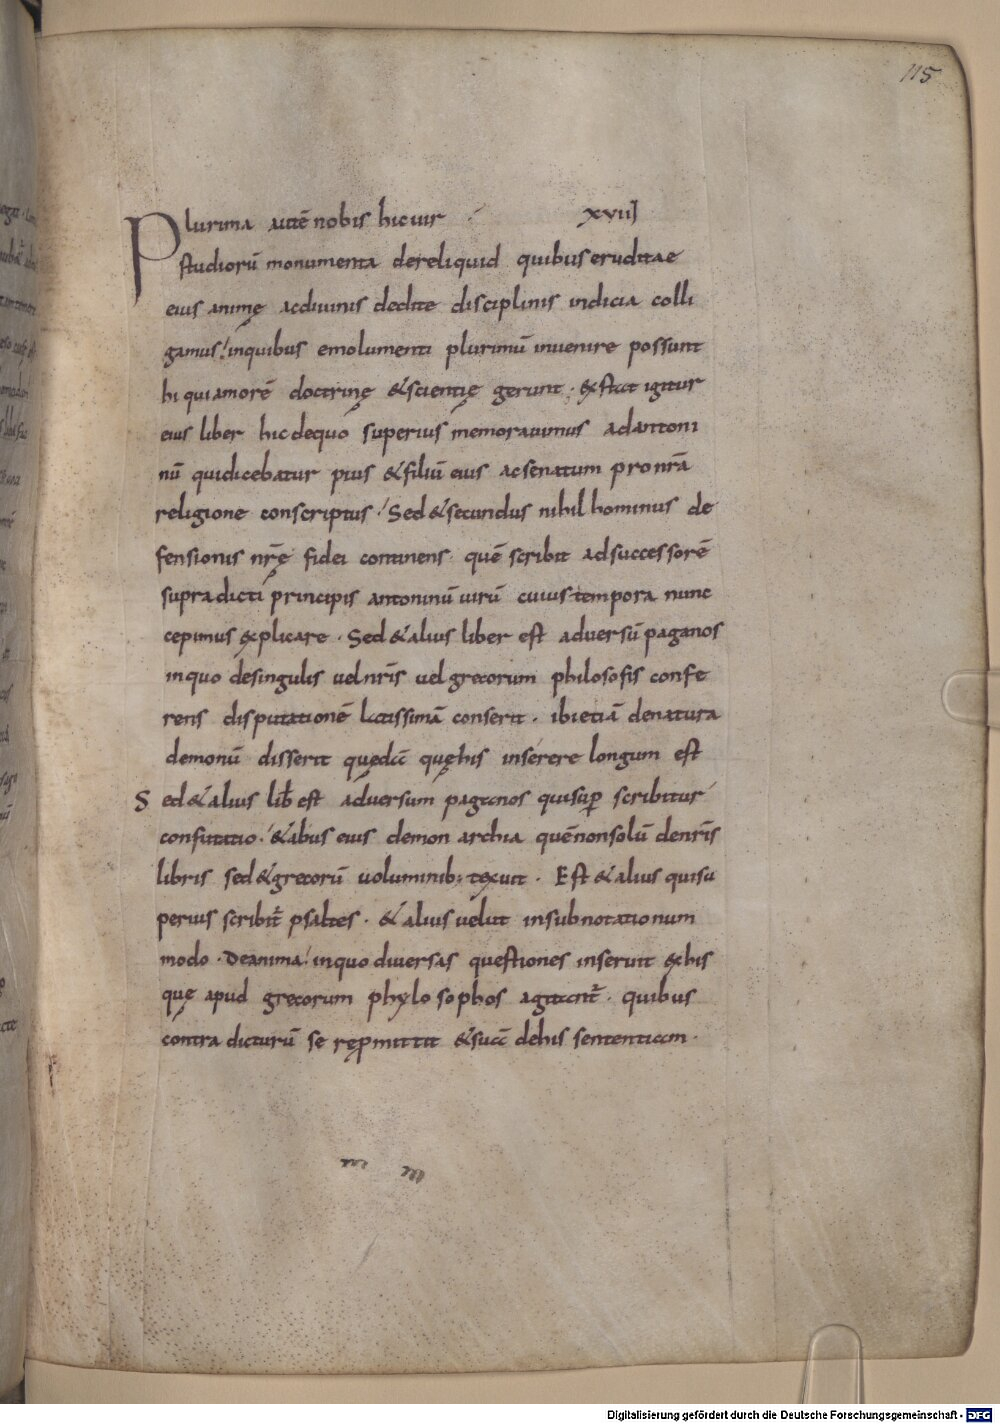 115
Plurima autē nobis hic uir xvii
studiorū monumenta dereliquid quibus eruditae
eius animę ac divinis dedite disciplinis indicia colli
gamus. inquibus emolumenti plurimū invenire possunt
hi qui amorē doctrinę & scientię gerunt. exstat igitur
eius liber hic dequo superius memoravimus ad antoni
nū qui dicebatur pius & filiū eius ac senatum pro nrā
religione conscriptus. Sed & secundus nihilhominus de
fensionis nrę fidei continens. quē scribit ad successorē
supradicti principis antoninū uirū cuius tempora nunc
cepimus explicare. Sed & alius liber est adversū paganos
in quo desingulis uel nrīs uel grecorum philosofis confe
rens disputationē latissimā conserit. ibi etiā denatura
demonū disserit quędā quę his inserere longum est
Sed & alius lib̄ est adversum paganos qui sup̄ scribitur
confutatio. & abus eius demon archia quē non solū denrīs
libris sed & grecorū uoluminib; texuit. Est & alius qui su
perius scribit̄ psaltes. & alius uelut in subnotationum
modo. De anima. inquo diversas questiones inserunt ex his
quę apud grecorum phylosophos agitant̄. quibus
contra dicturū se rep̄mittit & suā dehis sententiam.
m m
Digitalisierung gefördert durch die Deutsche Forschungsgemeinschaft - DFG